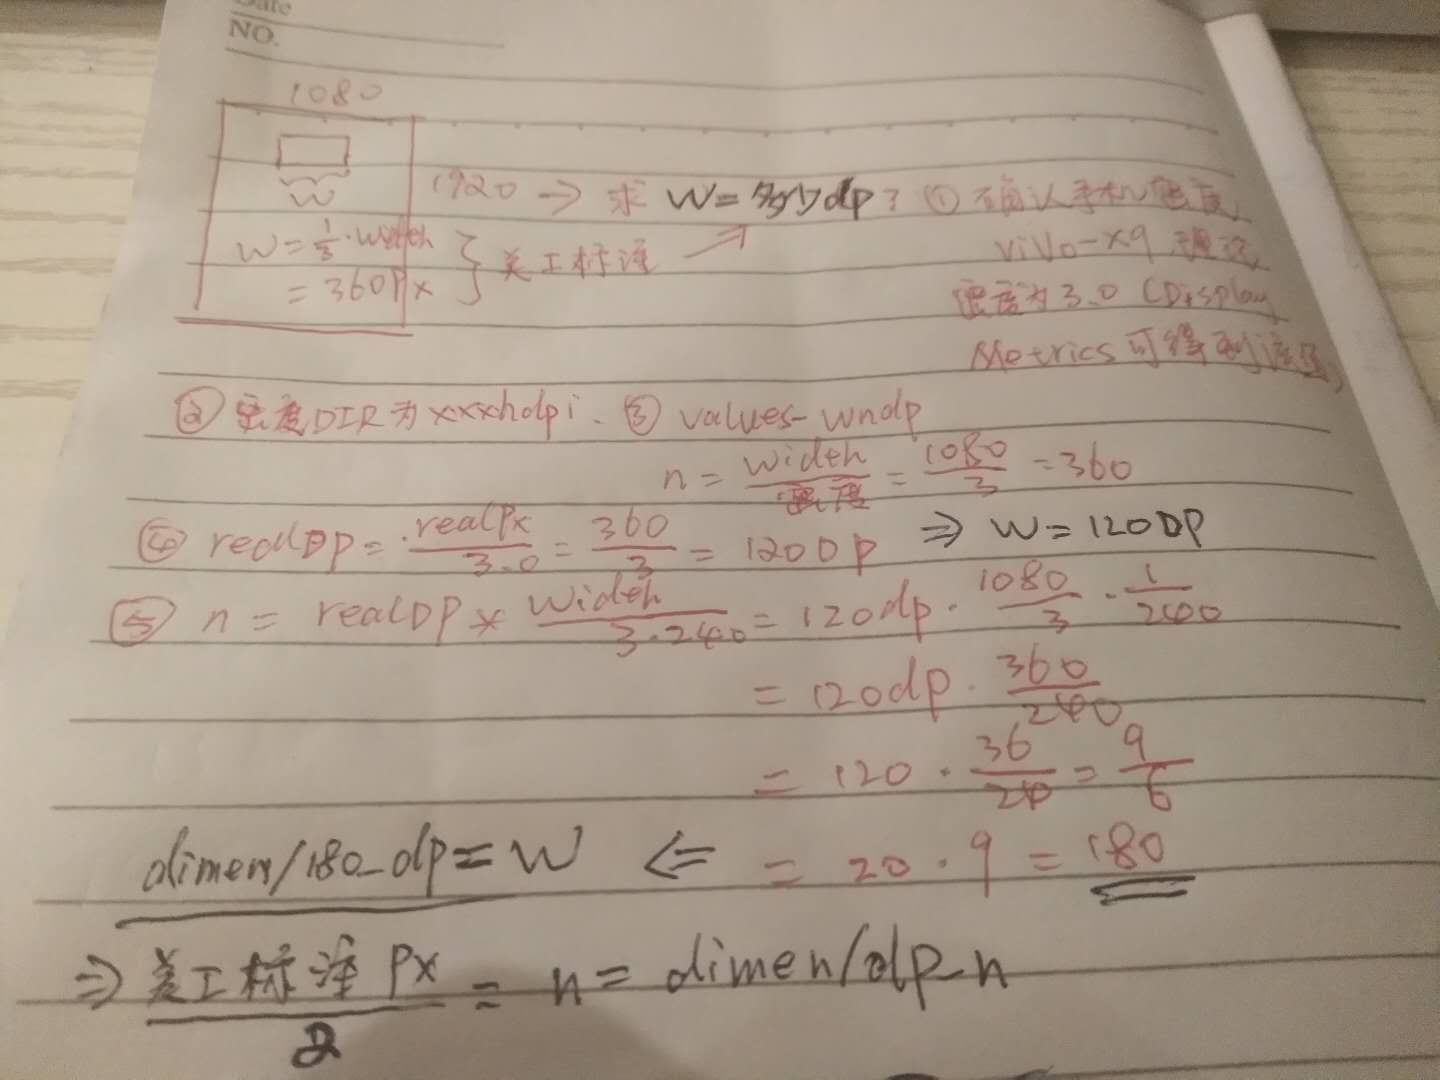 Date
NO.
1080
W
1920 => 求 W=多少dp? ① 确认手机密度
W = 1/3 · width
= 360px } 美工标注
vivo-x9
密度为3.0 (Display
Metrics 可得到该值)
② 密度DIR为xxxhdpi. ③ values-wndp
n = width/密度 = 1080/3 = 360
④ realDp = realpx/3.0 = 360/3 = 120Dp => W=120DP
⑤ n = realDP * width/3.240 = 120dp · 1080/3 · 1/240
= 120dp · 360/240
= 120 · 36/24 = 9/6
dimen/180_dp = W <= = 20 · 9 = 180
=> 美工标注 px/2 = n = dimen/dp_n